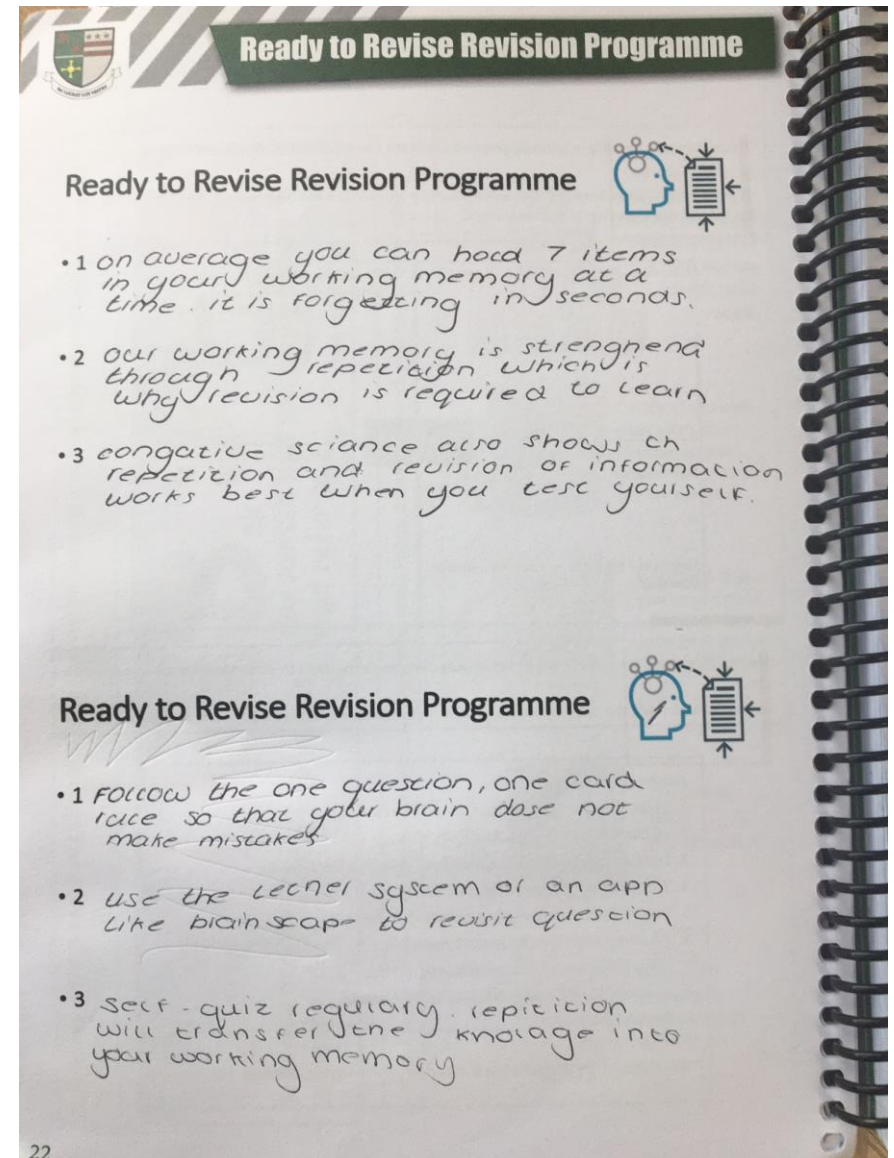 Ready to Revise Revision Programme
Ready to Revise Revision Programme
• 1 on average you can hold 7 items
in your working memory at a
time. it is forgetting in seconds.
• 2 our working memory is strenghend
through repetition which is
why revision is required to learn
• 3 congative sciance also shows th
repetition and revision of information
works best when you test yourself.
Ready to Revise Revision Programme
• 1 Follow the one question, one card
rule so that your brain dose not
make mistakes
• 2 use the Lecner system or an app
Like brainscape to revisit question
• 3 self-quiz regulary. repitition
will transfer the knolage into
your working memory
22